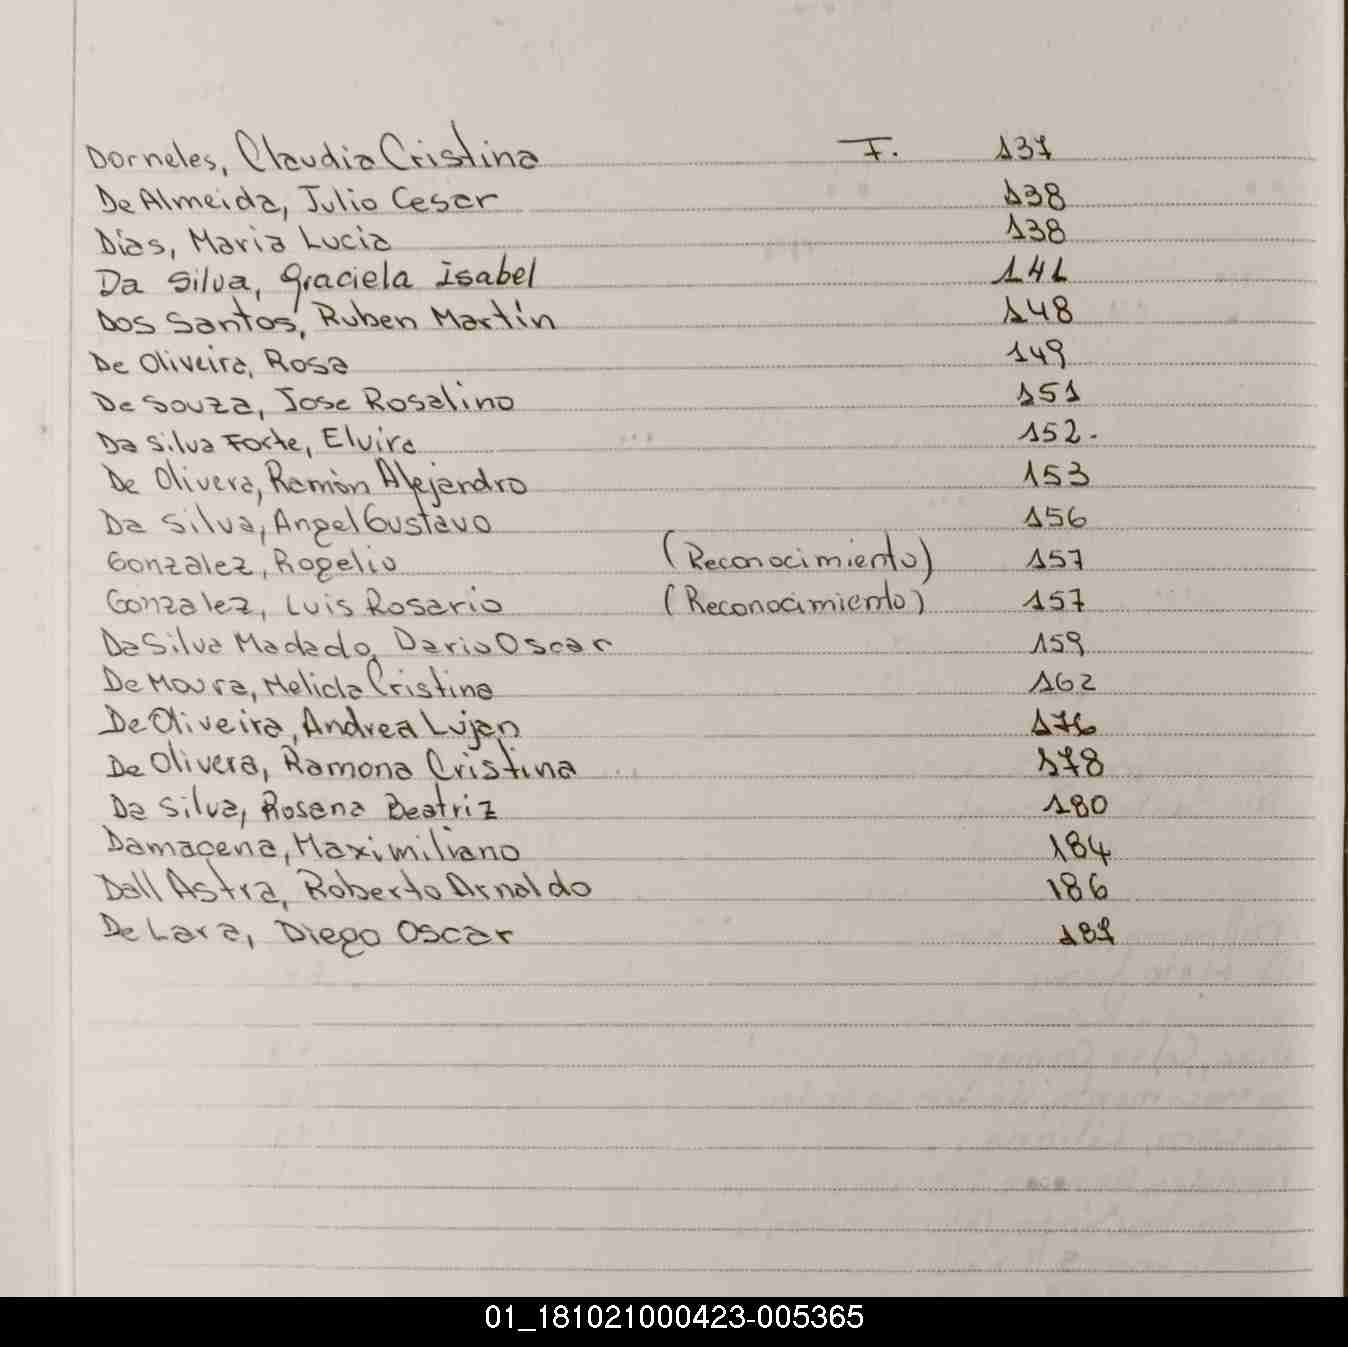 Dorneles, Claudia Cristina F. 137
De Almeida, Julio Cesar 138
Dias, Maria Lucia 138
Da Silva, Graciela Isabel 141
Dos Santos, Ruben Martin 148
De Oliveira, Rosa 149
De Souza, Jose Rosalino 151
Da Silva Forte, Elvira 152.
De Olivera, Ramón Alejandro 153
Da Silva, Angel Gustavo 156
Gonzalez, Rogelio (Reconocimiento) 157
Gonzalez, Luis Rosario (Reconocimiento) 157
Da Silva Madado, Dario Oscar 159
De Moura, Melida Cristina 162
De Oliveira, Andrea Lujan 176
De Olivera, Ramona Cristina 178
Da Silva, Rosana Beatriz 180
Damagena, Maximiliano 184
Dall Astra, Roberto Arnaldo 186
De Lara, Diego Oscar 187
01_181021000423-005365